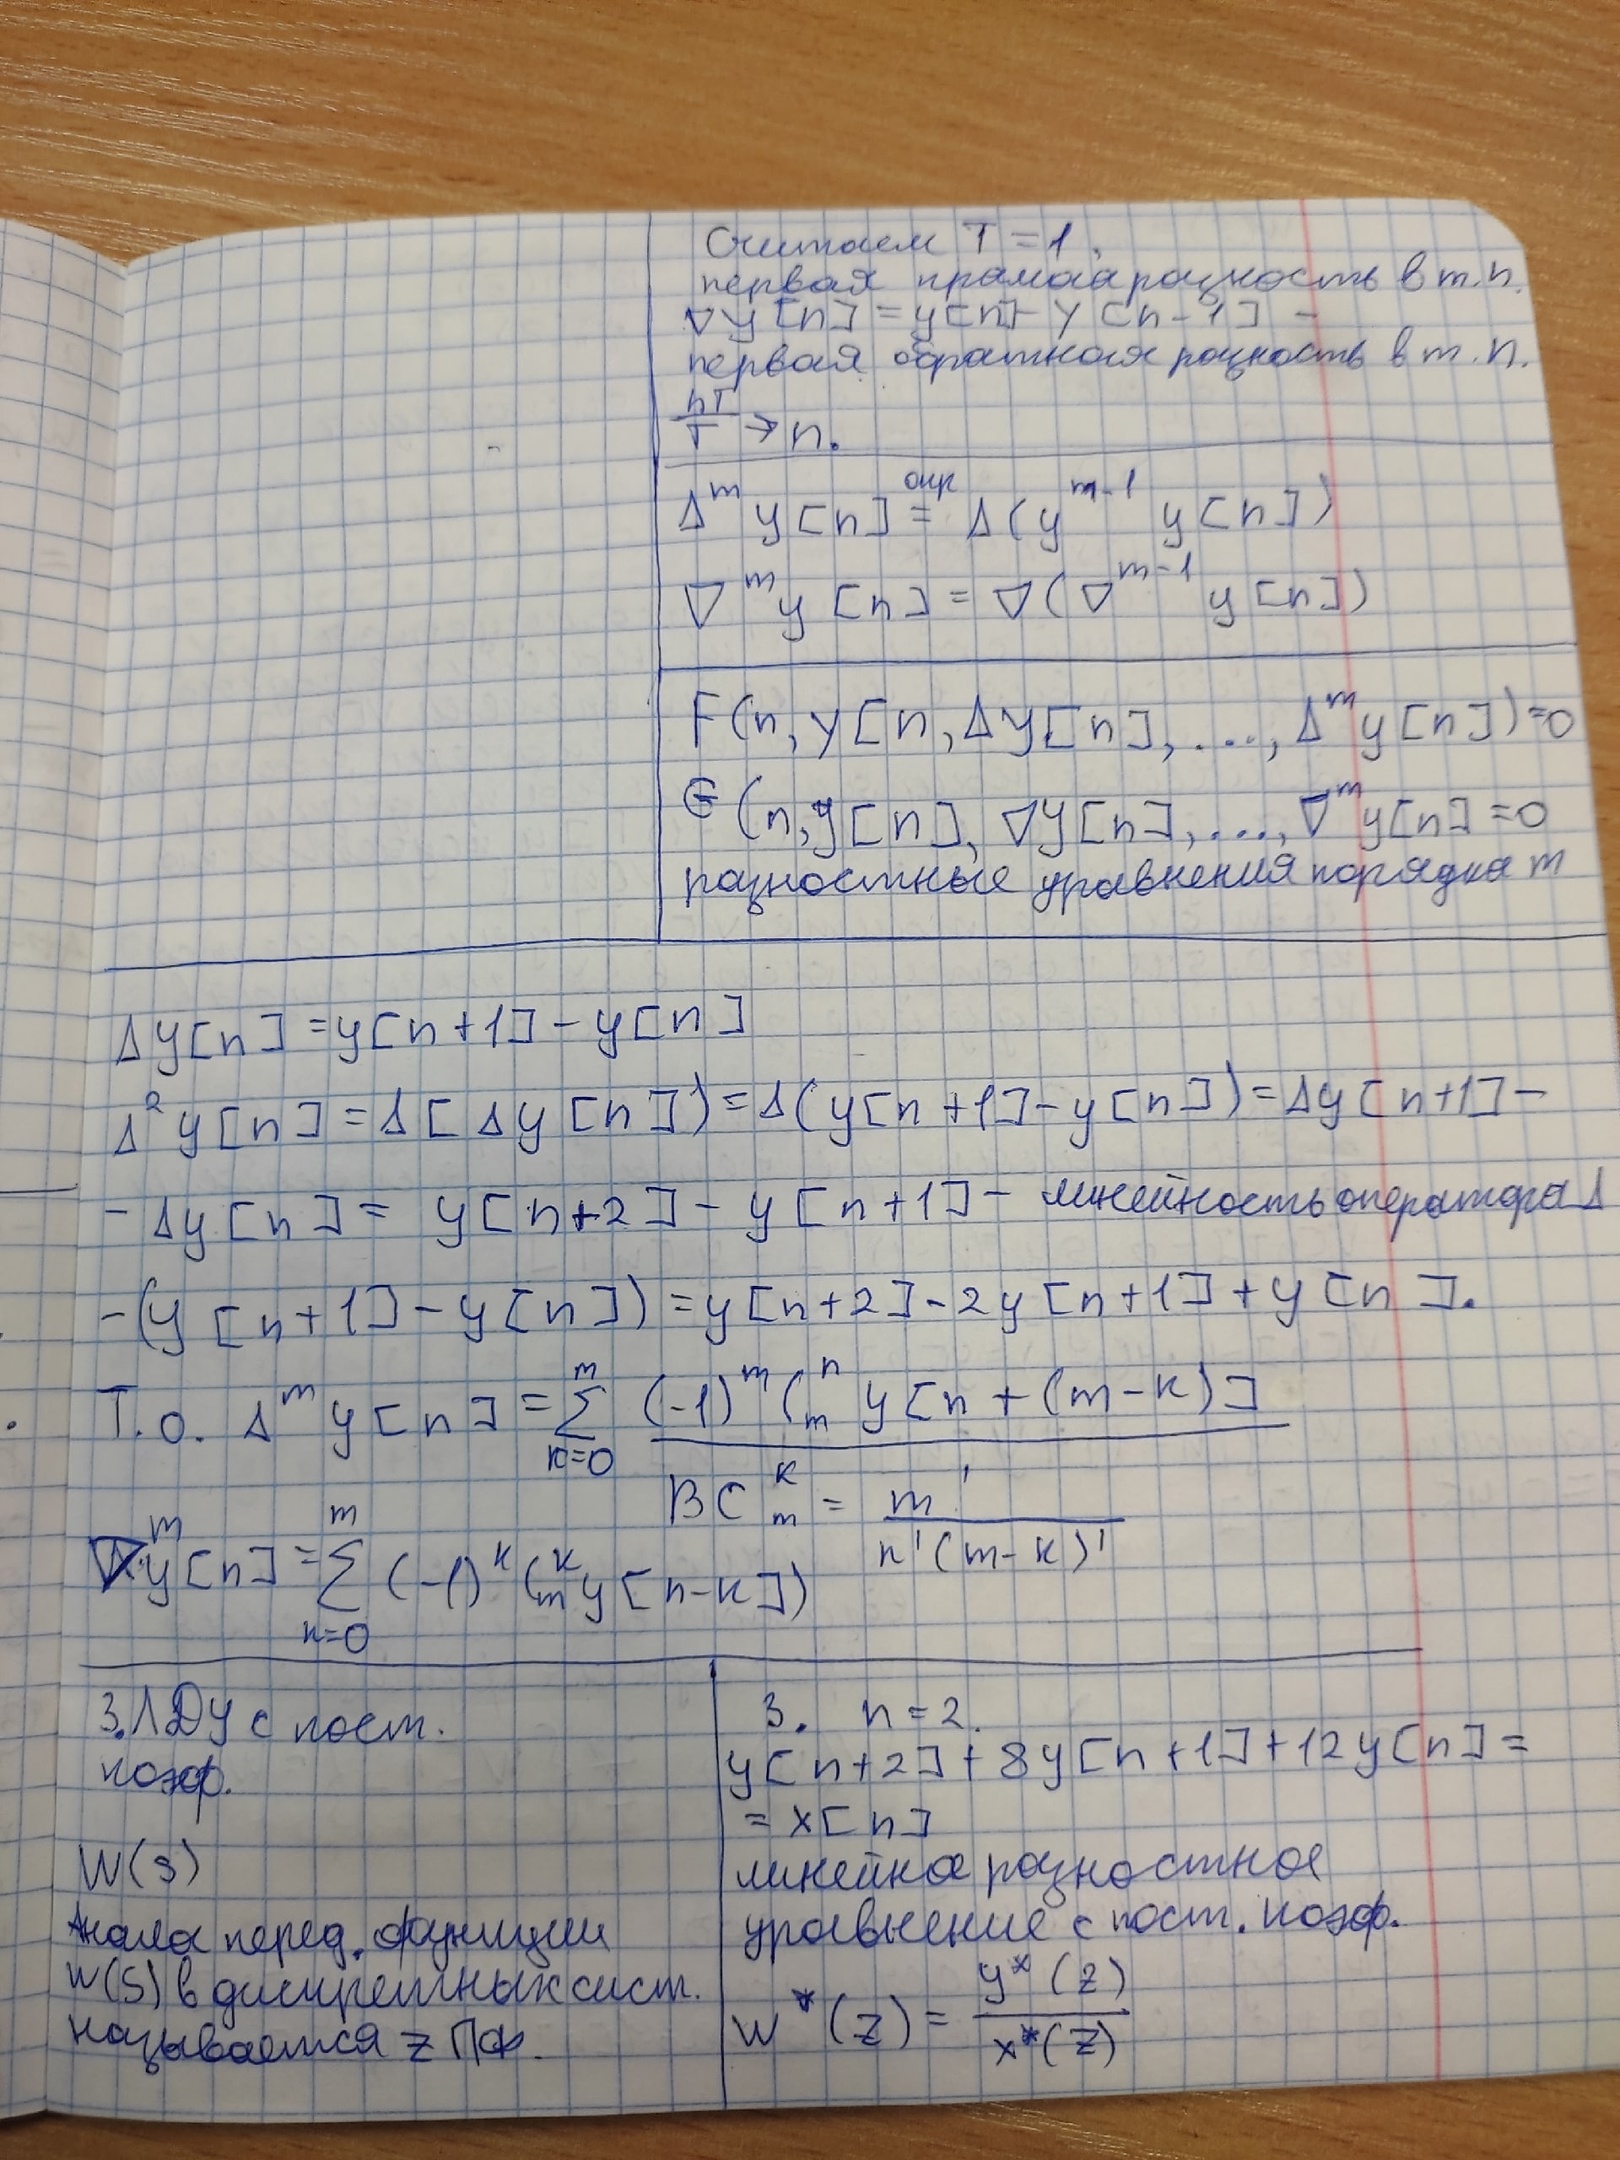 Считаем T = 1.
первая прямая разность в т.n.
∇y[n] = y[n] - y[n-1] -
первая обратная разность в т.n.
nT/T → n.
Δ^m y[n] =^опр Δ(y^(m-1) y[n])
∇^m y[n] = ∇(∇^(m-1) y[n])
F(n, y[n, Δy[n], ..., Δ^m y[n]) = 0
G(n, y[n], ∇y[n], ..., ∇^m y[n] = 0
разностные уравнения порядка m
Δy[n] = y[n+1] - y[n]
Δ²y[n] = Δ[Δy[n]) = Δ(y[n+1] - y[n]) = Δy[n+1] -
- Δy[n] = y[n+2] - y[n+1] - линейность оператора Δ
- (y[n+1] - y[n]) = y[n+2] - 2y[n+1] + y[n].
Т.о. Δ^m y[n] = Σ_(k=0)^m (-1)^m (_m^n y[n + (m-k)]
BC_m^k = m!/n!(m-k)!
∇^m y[n] = Σ_(k=0)^m (-1)^k (_m^k y[n-k])
3. ЛДУ с пост.
коэф.
W(s)
Аналог перед. функции
W(S) в дискретных сист.
называется z ПФ.
3. n = 2.
y[n+2] + 8y[n+1] + 12y[n] =
= x[n]
линейное разностное
уравнение с пост. коэф.
W*(z) = y*(z)/x*(z)